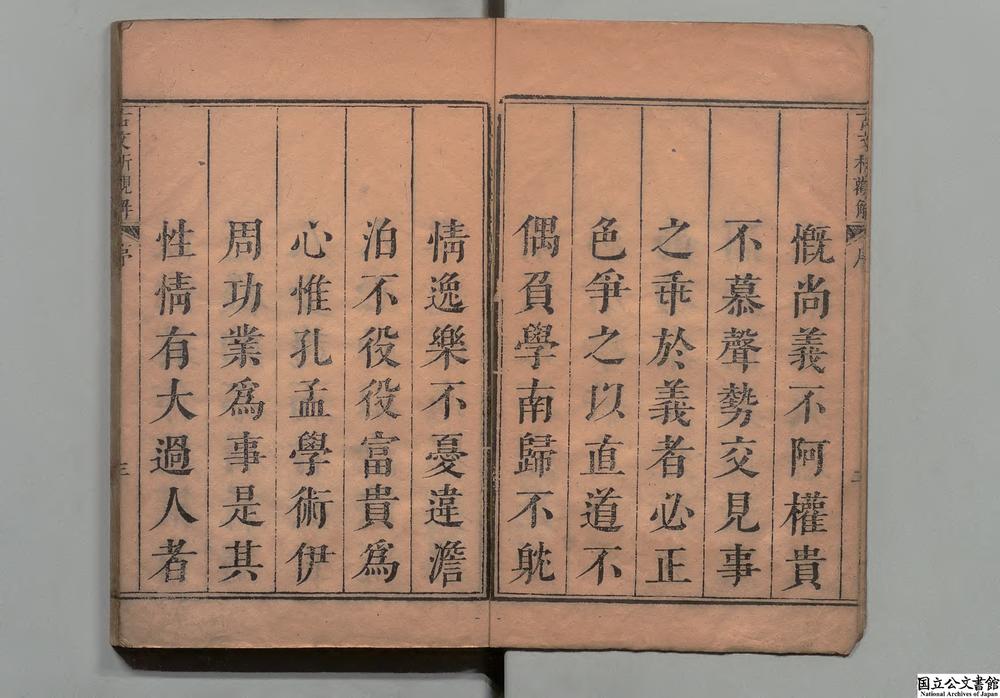 慨尚義不阿權貴
不慕聲勢交見事
之乖於義者必正
色爭之以直道不
偶負學南歸不躭
情逸樂不憂違澹
泊不役役富貴為
心惟孔孟學術伊
周功業為事是其
性情有大過人者
序
三
国立公文書館
National Archives of Japan